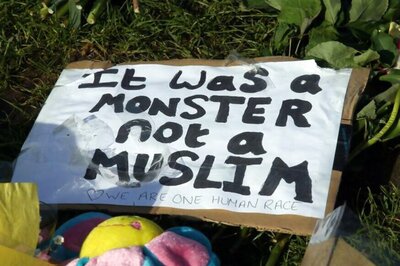 It was a
MONSTER
not a
MUSLIM
♡ WE ARE ONE HUMAN RACE